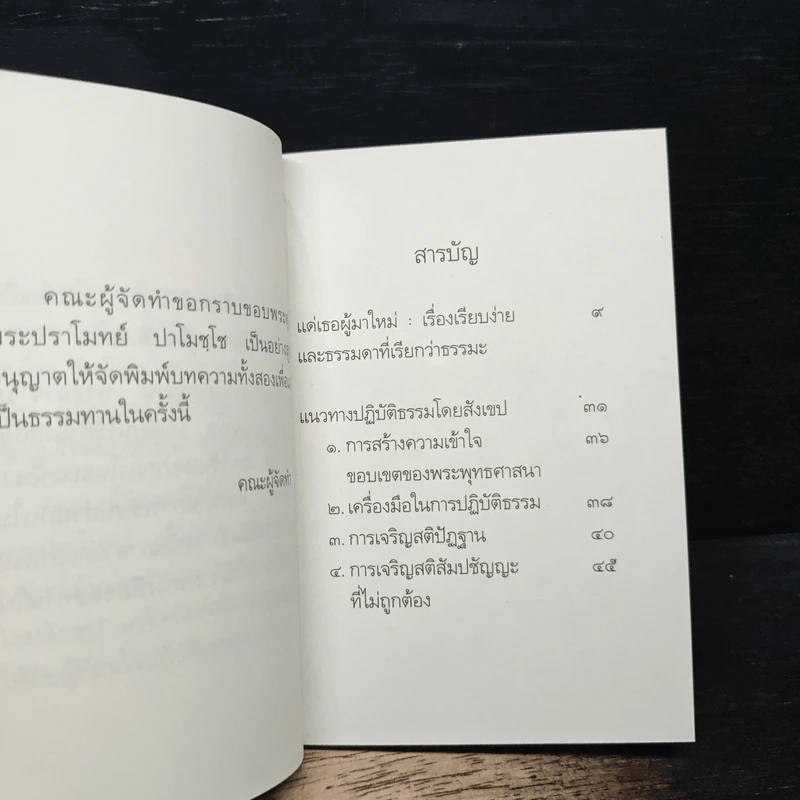 คณะผู้จัดทำขอกราบขอบพระ
พระปราโมทย์ ปาโมชฺโช เป็นอย่าง
นุญาตให้จัดพิมพ์บทความทั้งสองเพื่อ
เป็นธรรมทานในครั้งนี้
คณะผู้จัดทำ
สารบัญ
แด่เธอผู้มาใหม่ : เรื่องเรียบง่าย ๙
และธรรมดาที่เรียกว่าธรรมะ
แนวทางปฏิบัติธรรมโดยสังเขป ๓๑
๑. การสร้างความเข้าใจ ๓๖
ขอบเขตของพระพุทธศาสนา
๒. เครื่องมือในการปฏิบัติธรรม ๓๘
๓. การเจริญสติปัฏฐาน ๔๐
๔. การเจริญสติสัมปชัญญะ ๔๕
ที่ไม่ถูกต้อง